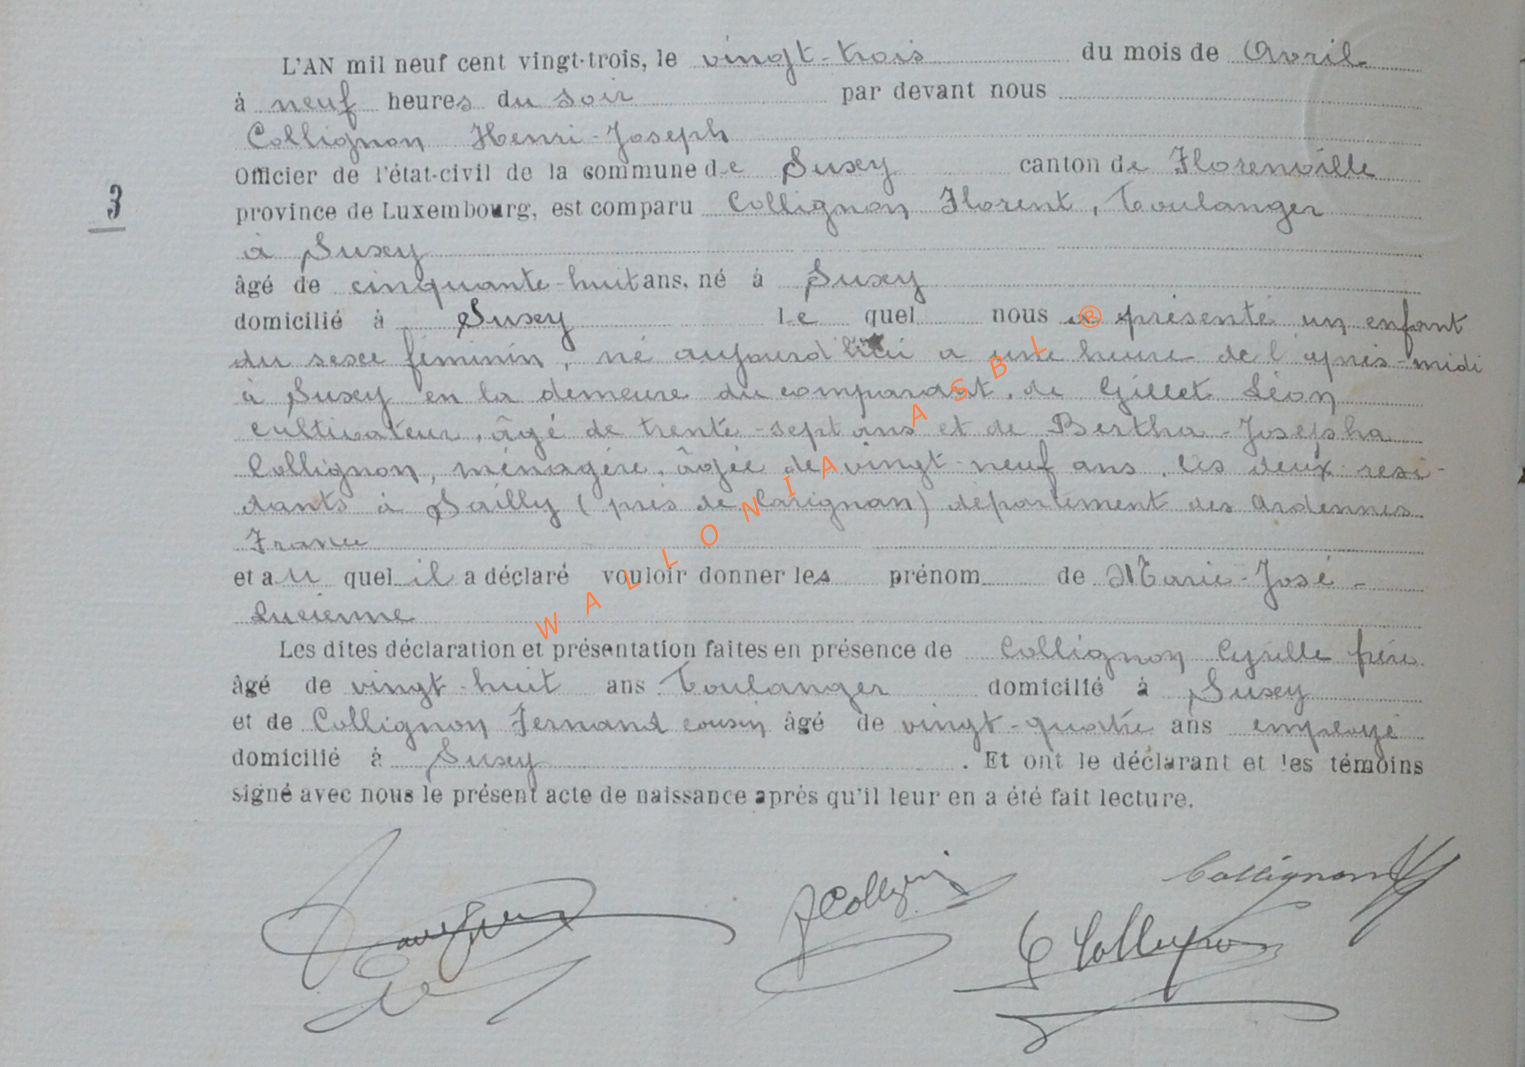 L'AN mil neuf cent vingt-trois, le vingt-trois du mois de Avril
à neuf heures du soir par devant nous
Collignon Henri-Joseph
Officier de l'état-civil de la commune de Suxy canton de Florenville
3
province de Luxembourg, est comparu Collignon Florent, boulanger
à Suxy
âgé de cinquante-huit ans, né à Suxy
domicilié à Suxy Le quel nous a présenté un enfant
du sexe féminin, né aujourd'hui a une heure de l'après-midi
à Suxy en la demeure du comparant, de Gillet Léon
cultivateur, âgé de trente-sept ans et de Bertha-Josépha
Collignon, ménagère, âgée de vingt-neuf ans, les deux resi-
dants à Sailly (près de Carignan) département des Ardennes
France
et au quel il a déclaré vouloir donner les prénom de Marie-José-
Lucienne
Les dites déclaration et présentation faites en présence de Collignon Cyrille frère
âgé de vingt-huit ans boulanger domicilié à Suxy
et de Collignon Fernand cousin âgé de vingt-quatre ans employé
domicilié à Suxy. Et ont le déclarant et les témoins
signé avec nous le présent acte de naissance après qu'il leur en a été fait lecture.
Collignon
C Collignon
WALLONIA ASBL ®